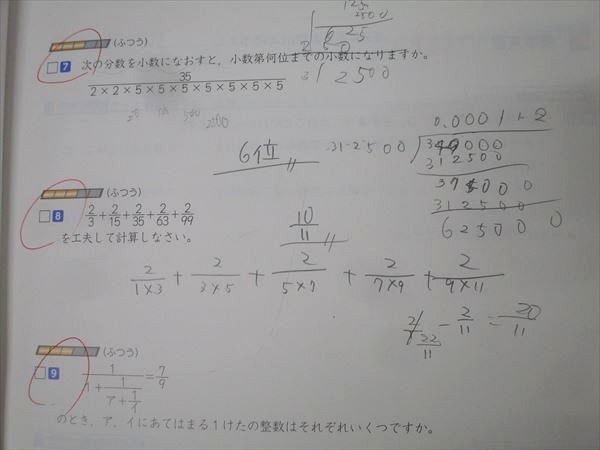 (ふつう)
7 次の分数を小数になおすと，小数第何位までの小数になりますか。
35
2×2×5×5×5×5×5×5×5
6位
312500
0.0001 1 2
312500
37 5000 0
312500
62500 0 0
(ふつう)
8 2/3+2/15+2/35+2/63+2/99
を工夫して計算しなさい。
10/11
2/1×3 + 2/3×5 + 2/5×7 + 2/7×9 + 2/9×11
22/11 - 2/11 = 20/11
(ふつう)
9 1/(1+1/(ア+1/イ))=7/9
のとき，ア，イにあてはまる1けたの整数はそれぞれいくつですか。